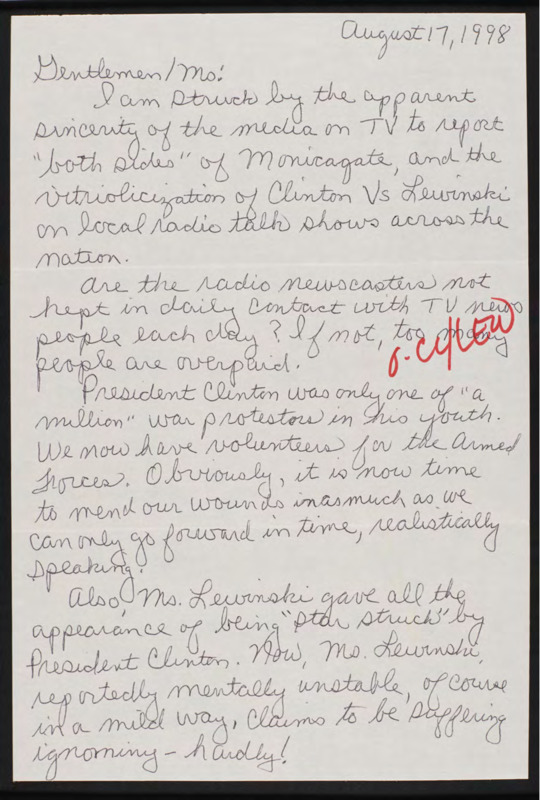 August 17, 1998
Gentlemen/Ms:
I am struck by the apparent
sincerity of the media on TV to report
"both sides" of Monicagate, and the
vitriolicization of Clinton Vs Lewinski
on local radio talk shows across the
nation.
Are the radio newscasters not
kept in daily contact with TV news
people each day? If not, too many
people are overpaid.
O-CL/LEW
President Clinton was only one of "a
million" war protestors in his youth.
We now have volunteers for the Armed
Forces. Obviously, it is now time
to mend our wounds inasmuch as we
can only go forward in time, realistically
speaking.
Also, Ms. Lewinski gave all the
appearance of being "star struck" by
President Clinton. Now, Ms. Lewinski,
reportedly mentally unstable, of course
in a mild way, claims to be suffering
ignominy - hardly!